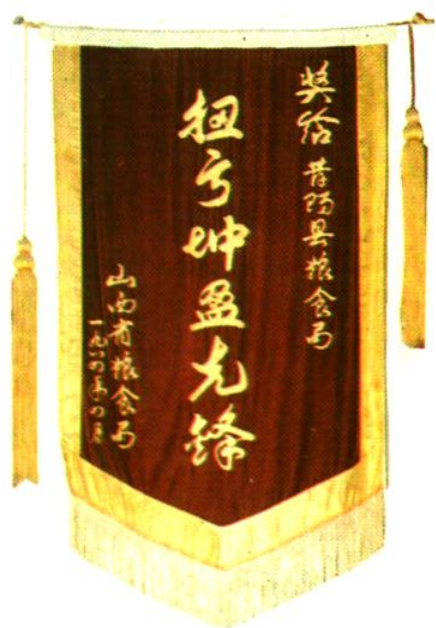 奖给昔阳县粮食局
扭亏增盈先锋
山西省粮食局
一九八四年四月